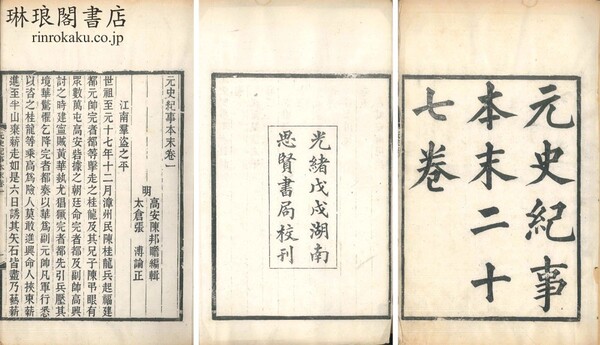 琳琅閣書店
rinrokaku.co.jp
元史紀事
本末二十
七卷
光緒戊戌湖南
思賢書局校刊
元史紀事本末卷一
明 高安陳邦瞻編輯
太倉張 溥論正
江南羣盜之平
世祖至元十七年十二月漳州民陳桂龍兵起福建
都元帥完者都等擊走之桂龍及其兄子陳弔眼有
眾數萬屯高安砦據之朝廷命完者都及副帥高興
討之時建寧賊黃華埶尤猖獗完者都先引兵壓其
境華驚懼乞降完者都奏以華爲副元帥凡軍行悉
以咨之桂龍等乘高爲險人莫敢進興命人挾束薪
進至半山棄薪走如是六日誘其矢石皆盡乃爇薪